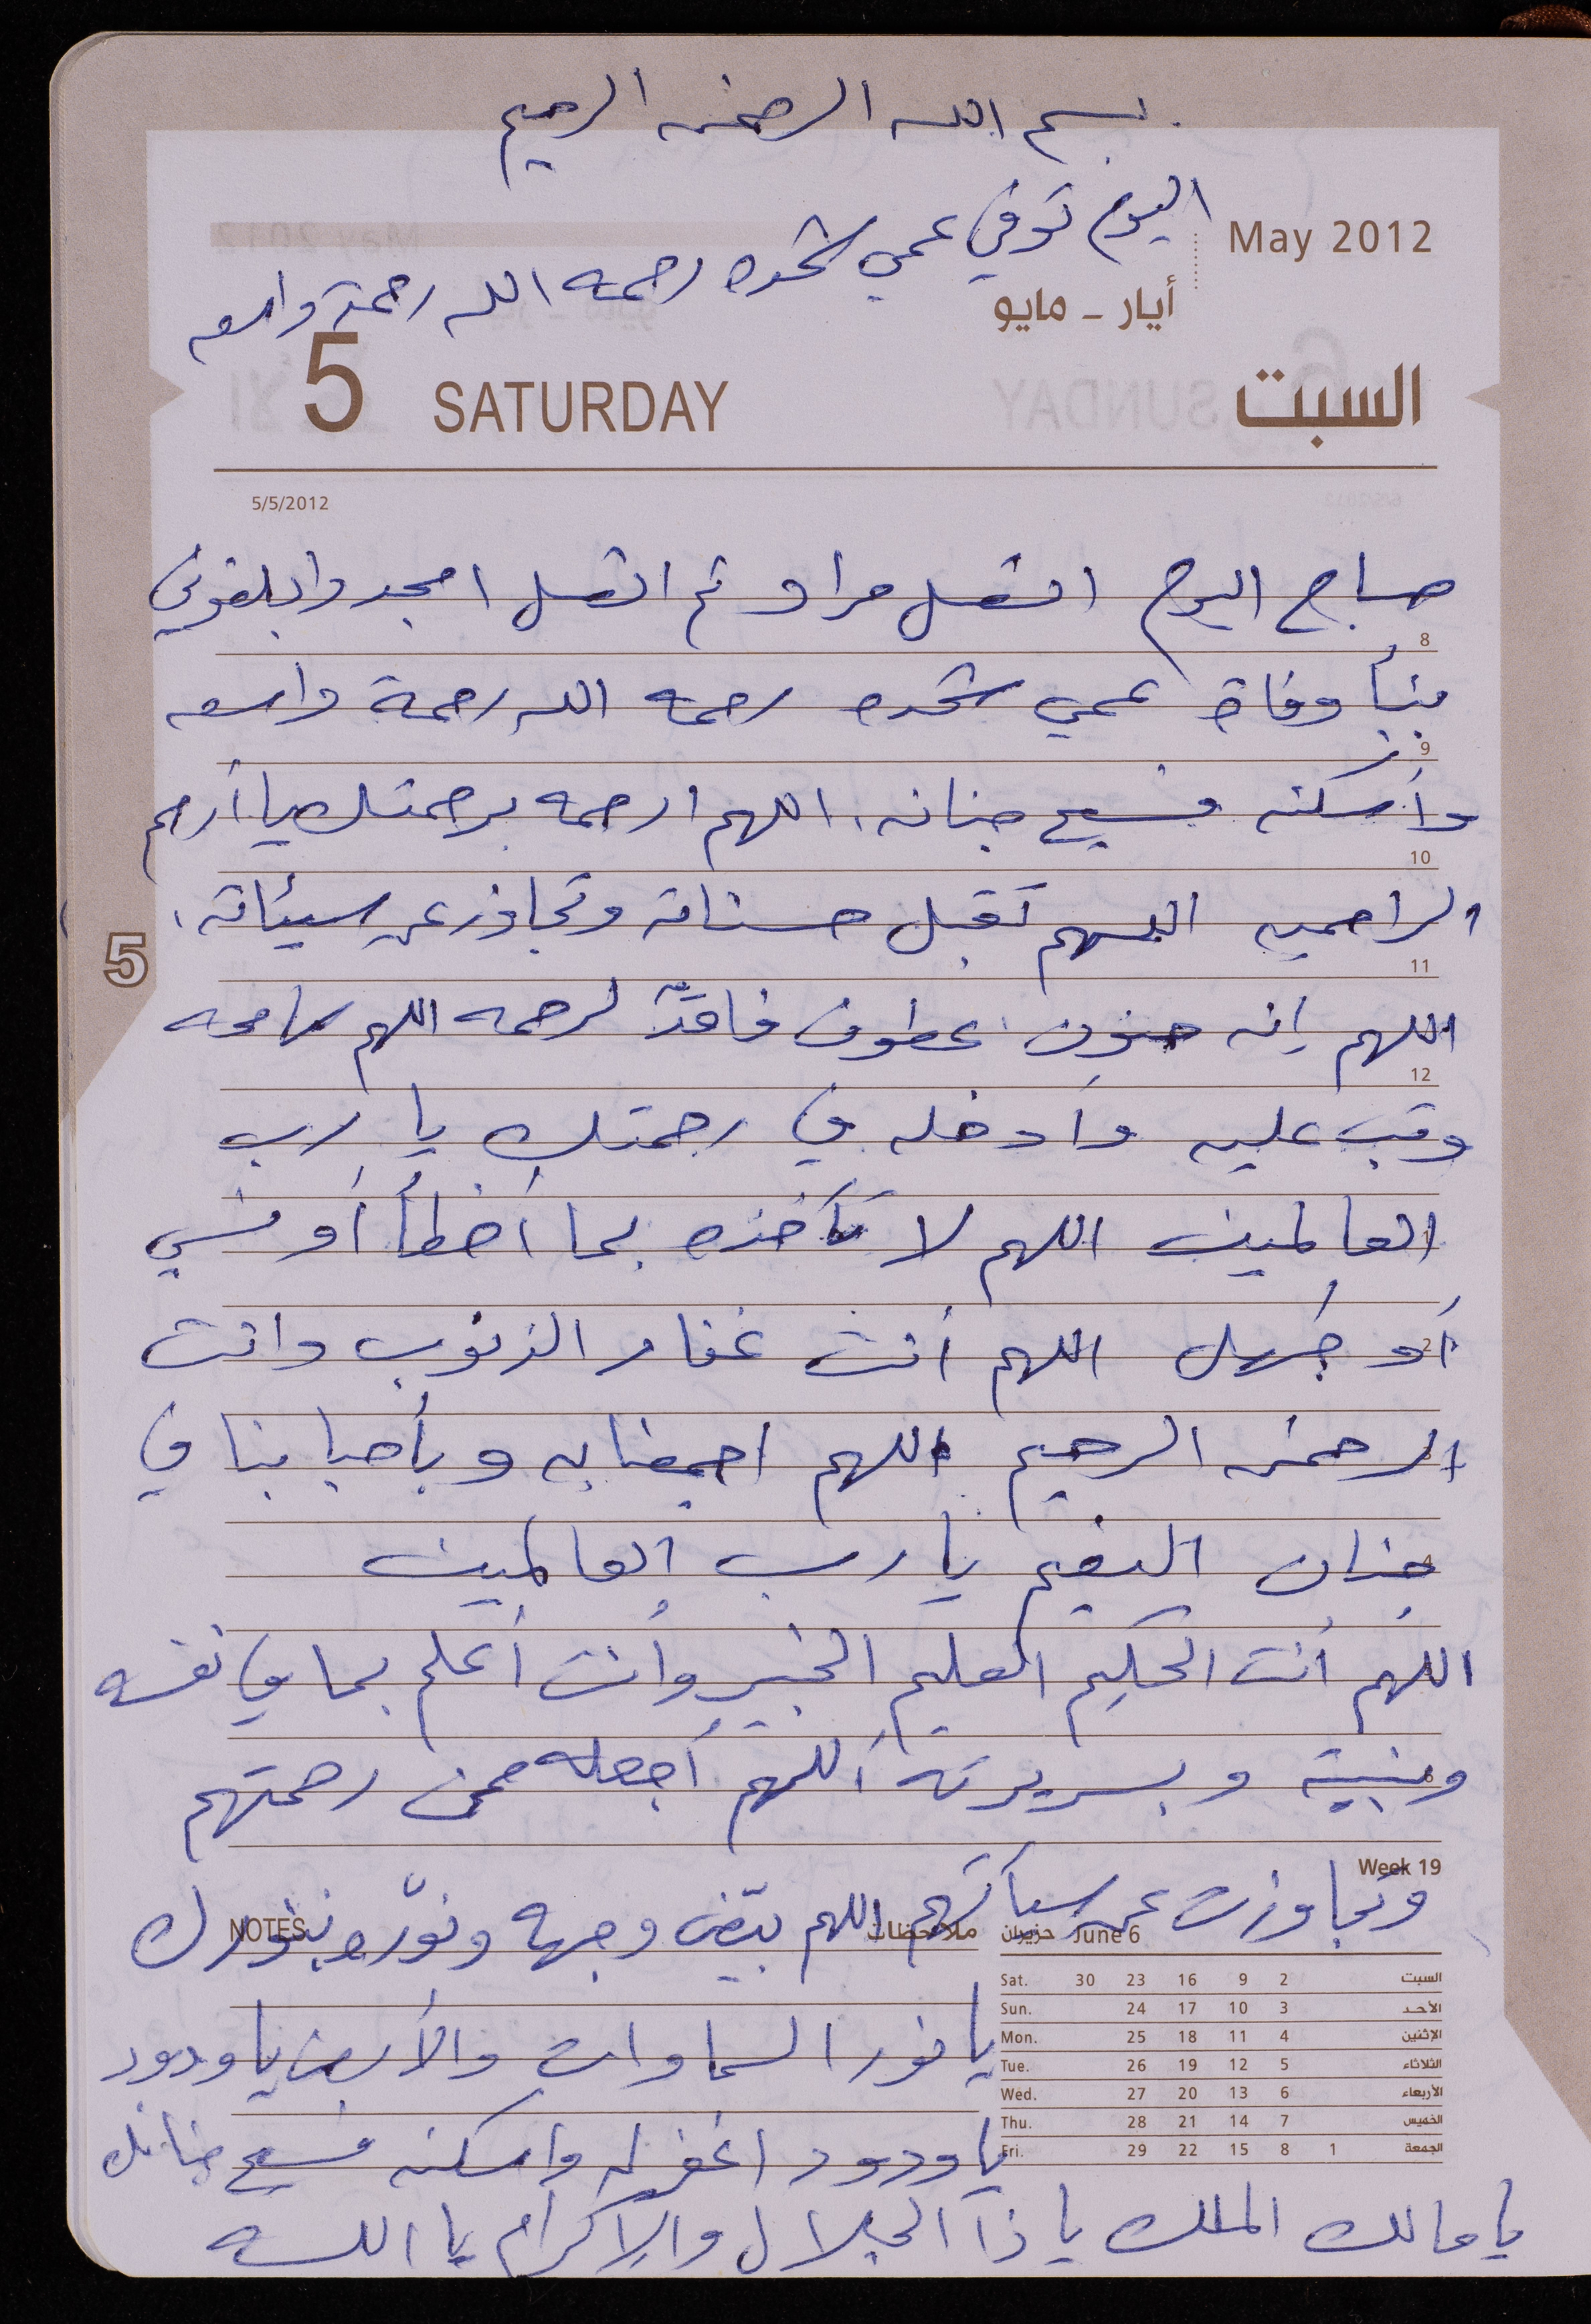 بسم الله الرحمن الرحيم
اليوم توفي عمي شحده رحمه الله رحمة واسعه
May 2012
أيار - مايو
5 SATURDAY السبت
5/5/2012
صباح اليوم اتصل مراد ثم اتصل امجد وابلغوني
8
بنبأ وفاة عمي شحده رحمه الله رحمة واسعه
9
وأسكنه فسيح جنانه، اللهم ارحمه برحمتك يا أرحم
10
الراحمين اللهم تقبل حسناته وتجاوز عن سيئاته،
11
5
اللهم إنه حنون عطوف لرحمه اللهم سامحه
12
وتب عليه وأدخله في رحمتك يا رب
العالمين اللهم لا تأخذه بما أخطأ أو نسي
أو جهل اللهم أنت غفار الذنوب وانت
الرحمن الرحيم اللهم اجمعنا به وبأحبابنا في
جنان النعيم يا رب العالمين
اللهم أنت الحكيم العليم الخبير وأنت أعلم بما في نفسه
وبنيته وبسريرته اللهم أجعله ممن رحمتهم
Week 19
وتجاوزت عن سيأتهم اللهم بيّض وجهه ونوّره بنورك
NOTES ملاحظات
June 6 حزيران
يا نور السماوات والأرض يا ودود
يا ودود اغفر له واسكنه فسيح جنانك
Sat. 30 23 16 9 2 السبت
Sun. 24 17 10 3 الأحد
Mon. 25 18 11 4 الإثنين
Tue. 26 19 12 5 الثلاثاء
Wed. 27 20 13 6 الأربعاء
Thu. 28 21 14 7 الخميس
Fri. 29 22 15 8 1 الجمعة
يا مالك الملك يا ذا الجلال والإكرام يا الله